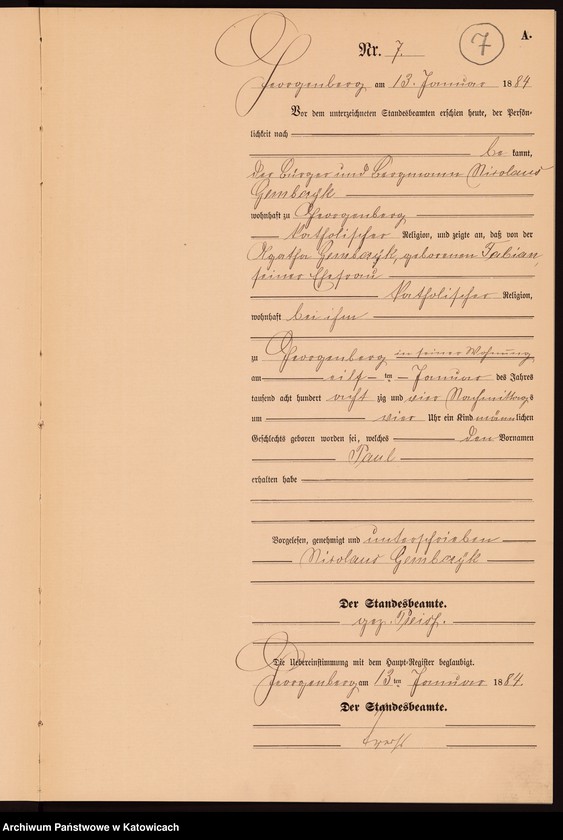 A.
Nr. 7.
7
Georgenberg am 13. Januar 1884
Vor dem unterzeichneten Standesbeamten erschien heute, der Persön-
lichkeit nach
be kannt,
der Bürger und Bergmann Nicolaus
Gembczyk
wohnhaft zu Georgenberg
katholischer Religion, und zeigte an, daß von der
Agatha Gembczyk, geborenen Fabian,
seiner Ehefrau
katholischer Religion,
wohnhaft bei ihm
zu Georgenberg in seiner Wohnung
am eilf ten Januar des Jahres
tausend acht hundert acht zig und vier Nachmittags
um vier Uhr ein Kind männlichen
Geschlechts geboren worden sei, welches den Vornamen
Paul
erhalten habe
Vorgelesen, genehmigt und unterschrieben
Nicolaus Gembczyk
Der Standesbeamte.
gez.
Die Uebereinstimmung mit dem Haupt-Register beglaubigt.
Georgenberg am 13 ten Januar 1884.
Der Standesbeamte.
Archiwum Państwowe w Katowicach